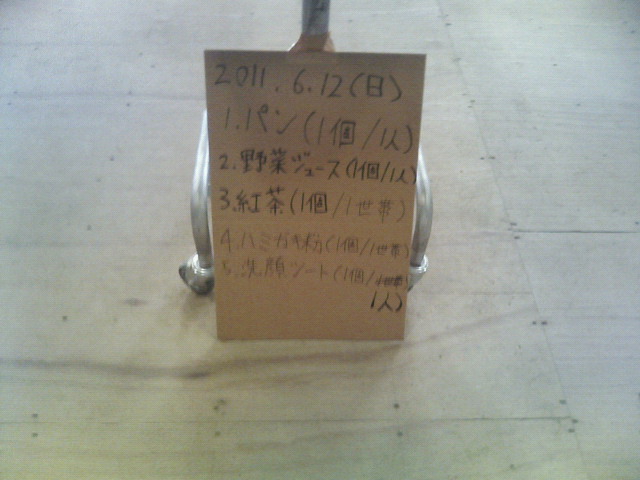 2011.6.12(日)
1.パン(1個/1人)
2.野菜ジュース(1個/1人)
3.紅茶(1個/1世帯)
4.ハミガキ粉(1個/1世帯)
5.洗顔シート(1個/1世帯)
1人)